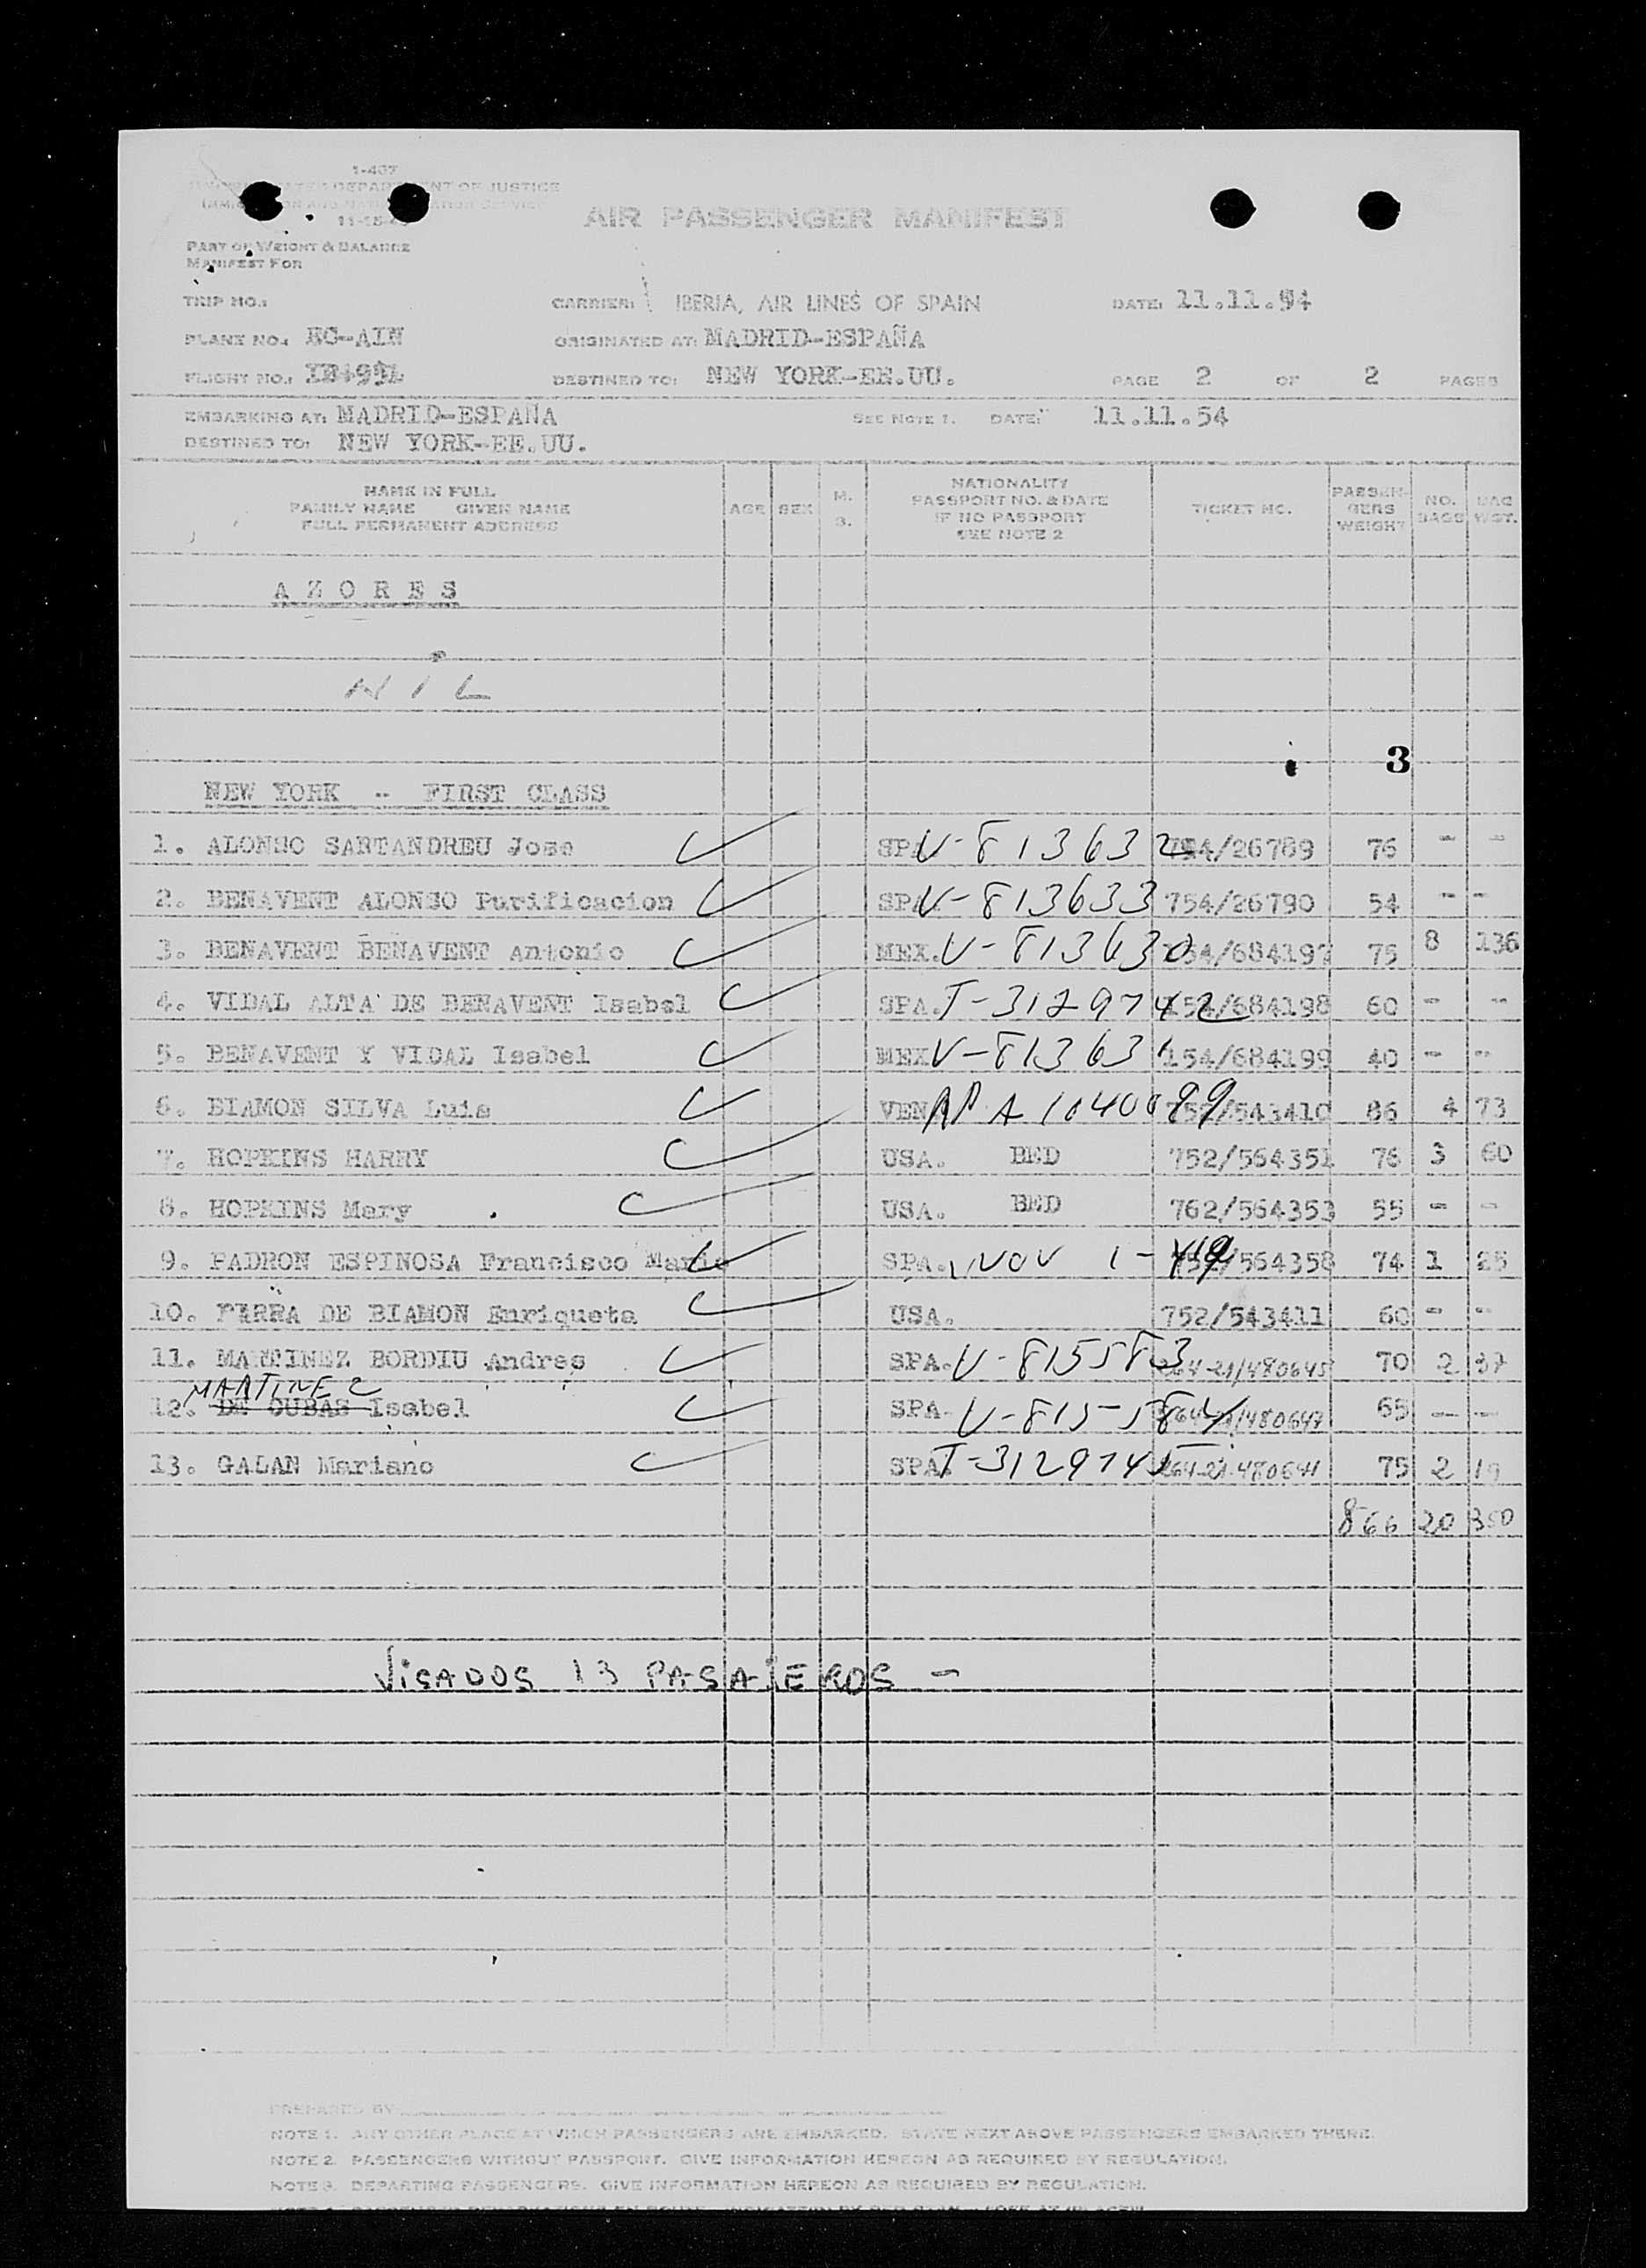 1-407
DEPARTMENT OF JUSTICE
AIR PASSENGER MANIFEST
PART OF WEIGHT & BALANCE
MANIFEST FOR
TRIP NO.:
CARRIER: IBERIA, AIR LINES OF SPAIN
DATE: 11.11.54
PLANE NO.: EC-AIN
ORIGINATED AT: MADRID-ESPAÑA
FLIGHT NO.:
DESTINED TO: NEW YORK-EE.UU.
PAGE 2 OF 2 PAGES
EMBARKING AT: MADRID-ESPAÑA
SEE NOTE 1. DATE: 11.11.54
DESTINED TO: NEW YORK-EE.UU.
NAME IN FULL
FAMILY NAME GIVEN NAME
FULL PERMANENT ADDRESS
AGE
SEX
M.
S.
NATIONALITY
PASSPORT NO. & DATE
IF NO PASSPORT
SEE NOTE 2
TICKET NO.
PASSEN-
GERS
WEIGHT
NO.
BAGS
BAG
WGT.
AZORES
NIL
3
NEW YORK -- FIRST CLASS
1. ALONSO SARTANDREU Jose SPA. V-813632 754/26789 76 - -
2. BENAVENT ALONSO Purificacion SPA. V-813633 754/26790 54 - -
3. BENAVENT BENAVENT Antonio MEX. V-813630 154/684197 75 8 136
4. VIDAL ALTA DE BENAVENT Isabel SPA. T-3129742 154/684198 60 - -
5. BENAVENT Y VIDAL Isabel MEX V-813631 154/684199 40 - -
6. BIAMON SILVA Luis VEN 752/543410 86 4 73
7. HOPKINS HARRY USA. BED 752/564351 76 3 60
8. HOPKINS Mary USA. BED 762/564353 55 - -
9. PADRON ESPINOSA Francisco Mario SPA. 752/564358 74 1 25
10. PARRA DE BIAMON Enriqueta USA. 752/543411 60 - -
11. MARTINEZ BORDIU Andres SPA. V-815583 264-21/480645 70 2 37
MARTINEZ
12. DE CUBAS Isabel SPA- V-815584 264-21/480647 65 - -
13. GALAN Mariano SPA. T-3129741 264-21-480641 75 2 19
866 20 350
VISADOS 13 PASAJEROS -
PREPARED BY
NOTE 1. ANY OTHER PLACE AT WHICH PASSENGERS ARE EMBARKED. STATE NEXT ABOVE PASSENGERS EMBARKED THERE.
NOTE 2. PASSENGERS WITHOUT PASSPORT. GIVE INFORMATION HEREON AS REQUIRED BY REGULATION.
NOTE 3. DEPARTING PASSENGERS. GIVE INFORMATION HEREON AS REQUIRED BY REGULATION.